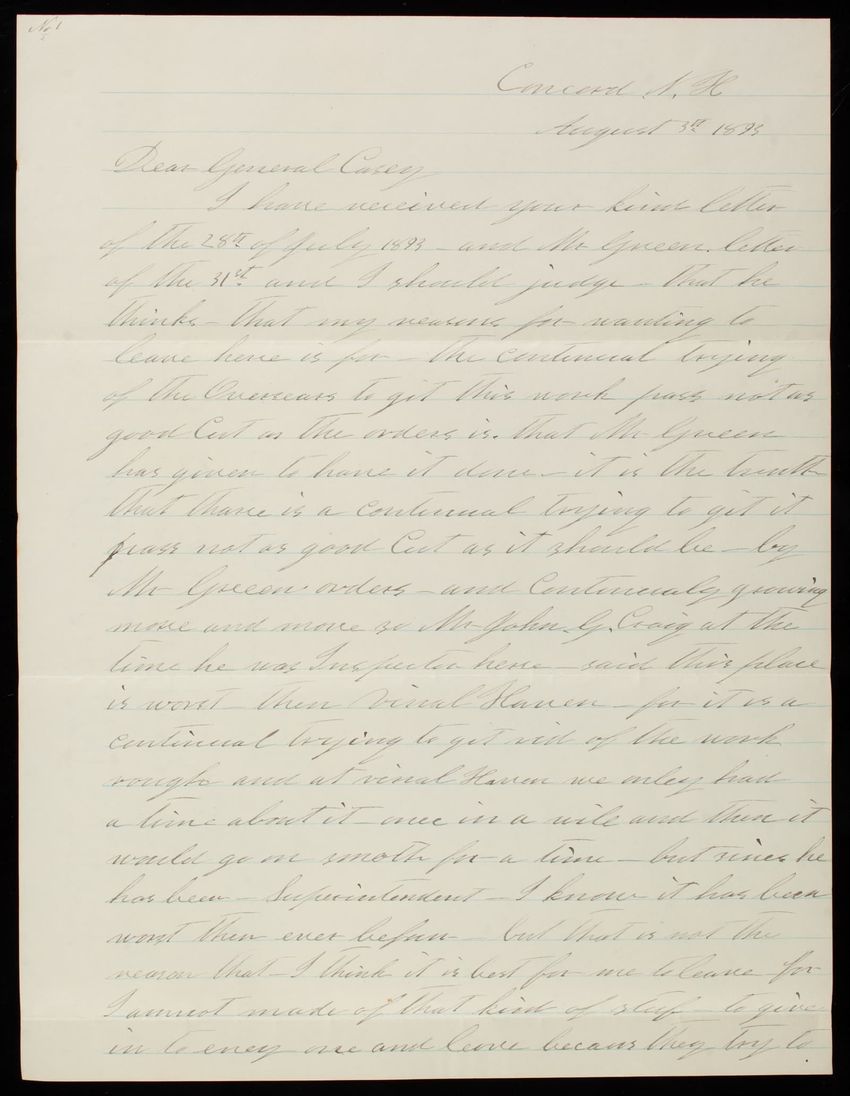 No 1
Concord N. H
August 3rd 1893
Dear General Casey
I have received your kind letter
of the 28th of July 1893 - and Mr Green. letter
of the 31st and I should judge - that he
thinks - that my reasons for wanting to
leave here is for - the continual trying
of the Oversears to git this work pass not as
good Cut as the orders is. that Mr Green
has given to have it done - it is the truth
that thare is a continual trying to git it
pass not as good Cut as it should be - by
Mr Green orders - and Continualy growing
more and more so Mr John. G. Craig at the
time he was Inspector here - said this place
is worst then Vinal Haven - for it is a
continual trying to git rid of the work
rough and at vinal Haven we onley had
a time about it once in a wile and then it
would go on smoth for a time - but since he
has been - Superintendent - I know it has been
worst then ever before - but that is not the
reason that - I think it is best for me to leave for
I am not made of that kind of stuf - to give
in to evey one and leave becaus they try to